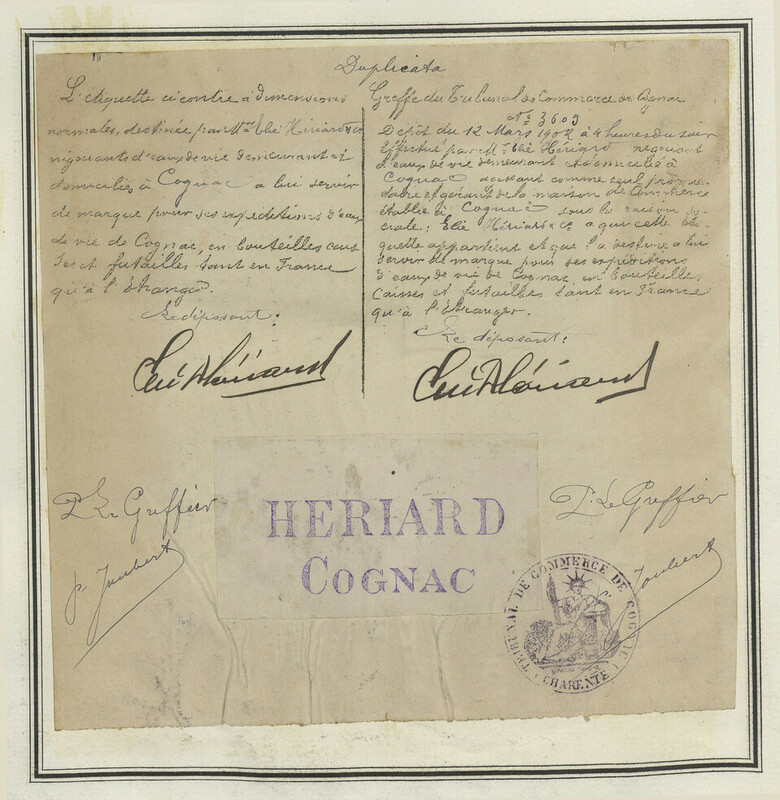 Duplicata
L'étiquette ci contre à dimensions
normales, destinée par Mr Elie Hériard & Co
négociants d'eaux de vie demeurant et
domiciliés à Cognac a lui servir
de marque pour ses expéditions d'eaux
de vie de Cognac, en bouteilles cais
ses et futailles tant en France
qu'à l'Etranger.
Le déposant:
Greffe du Tribunal de Commerce de Cognac
No 3609
Dépôt du 12 Mars 1902 à 4 heures du soir
Effectué par Mr Elie Hériard négociant
d'eaux de vie demeurant et domicilié à
Cognac agissant comme seul proprié
taire et gérant de la maison de Commerce
établie à Cognac sous la raison so
ciale: Elie Hériard & Co a qui cette éti
quette appartient et que l'a destinée a lui
servir de marque pour ses expéditions
d'eaux de vie de Cognac en bouteilles
caisses et futailles tant en France
qu'à l'étranger.
Le déposant:
P. Le Greffier
p. Joubert
HERIARD
COGNAC
P. Le Greffier
Joubert
TRIBUNAL DE COMMERCE DE COGNAC
CHARENTE